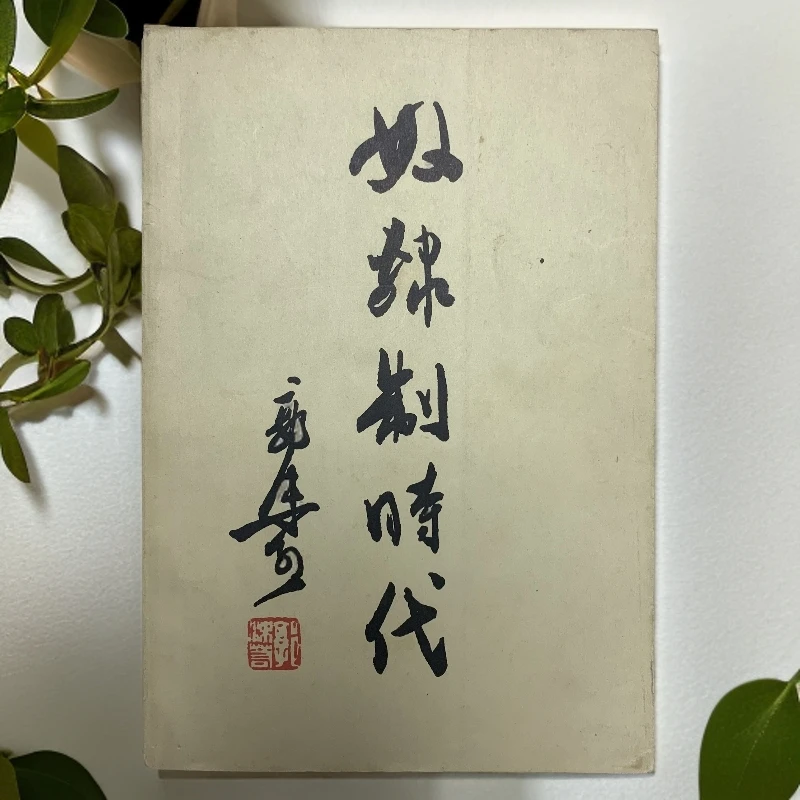 奴隸制時代
郭沫若
郭沫若